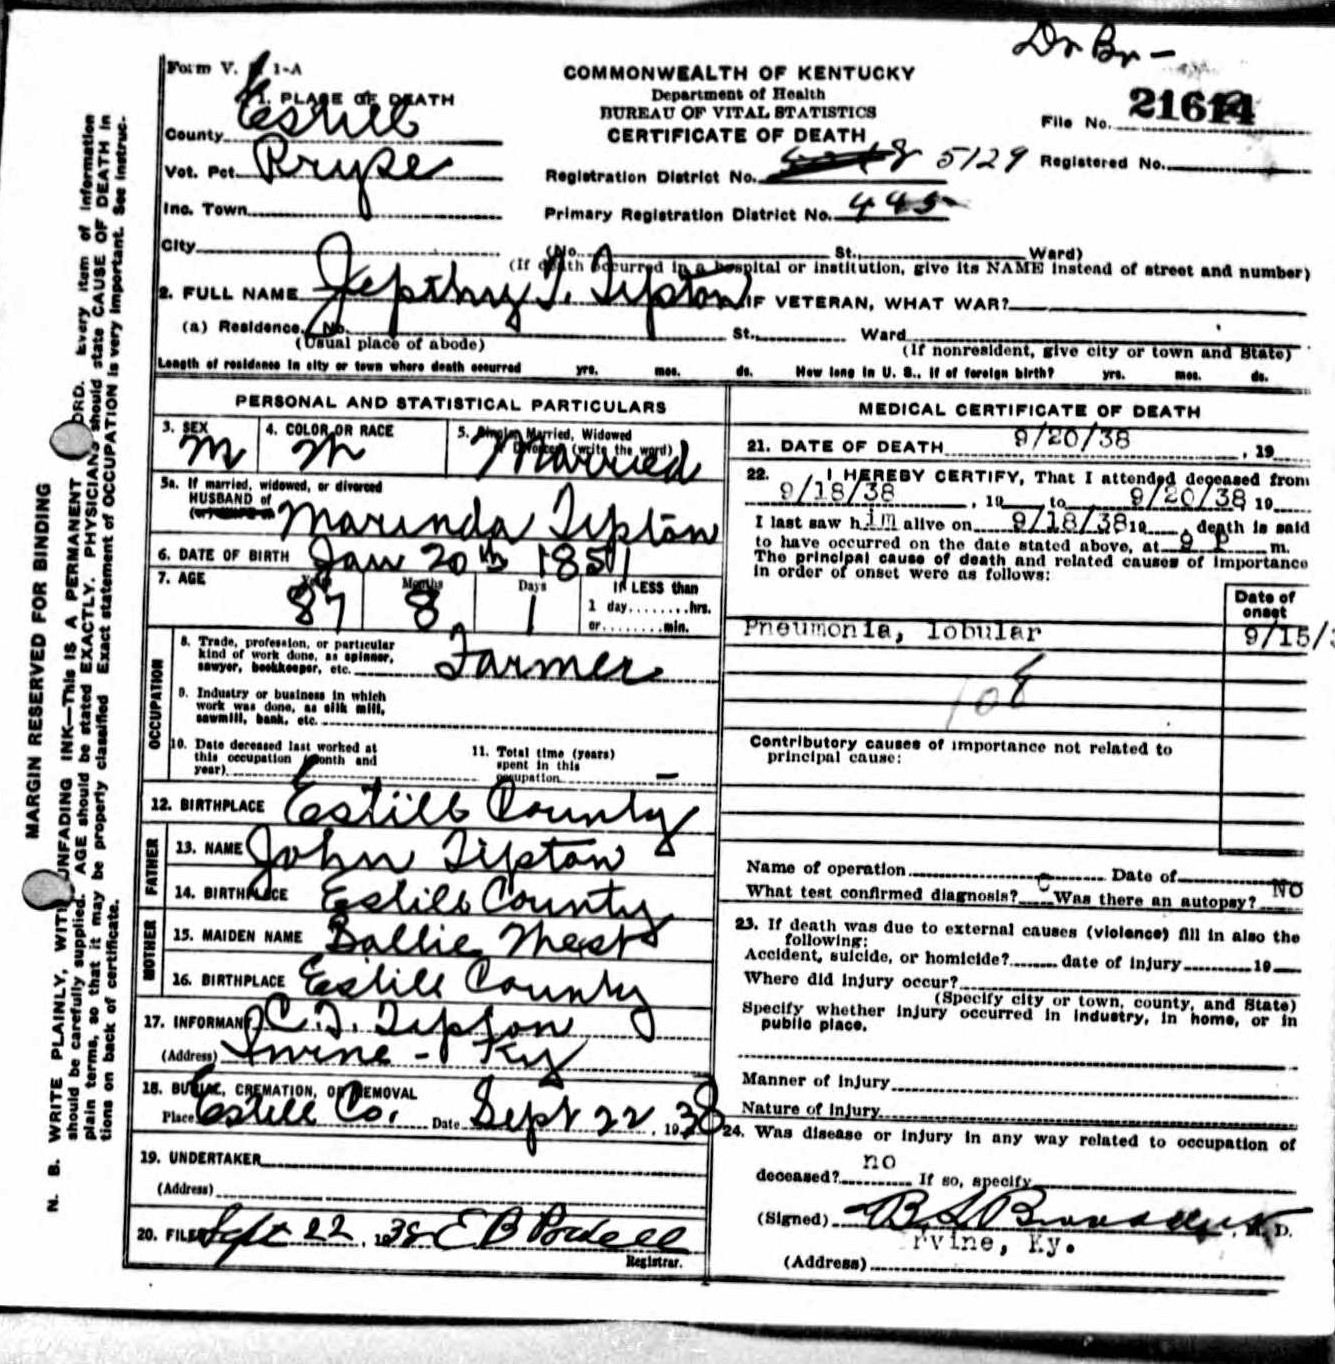 Dr Br-
Form V. 1-A
COMMONWEALTH OF KENTUCKY
Department of Health
BUREAU OF VITAL STATISTICS
CERTIFICATE OF DEATH
File No. 2161
1. PLACE OF DEATH
County Estill
Vot. Pct. Pryse
Registration District No. 5129 Registered No.
Inc. Town
Primary Registration District No. 445
City (No. St., Ward)
(If death occurred in a hospital or institution, give its NAME instead of street and number)
2. FULL NAME Jepthy T. Tipton IF VETERAN, WHAT WAR?
(a) Residence. No. St., Ward
(Usual place of abode) (If nonresident, give city or town and State)
Length of residence in city or town where death occurred yrs. mos. ds. How long in U. S., if of foreign birth? yrs. mos. ds.
PERSONAL AND STATISTICAL PARTICULARS
3. SEX 4. COLOR OR RACE 5. Single, Married, Widowed
Divorced (write the word)
M W Married
5a. If married, widowed, or divorced
HUSBAND of
Marinda Tipton
6. DATE OF BIRTH Jan 20th 1851
7. AGE Years Months Days If LESS than
87 8 1 1 day........hrs.
or........min.
OCCUPATION
8. Trade, profession, or particular
kind of work done, as spinner,
sawyer, bookkeeper, etc. Farmer
9. Industry or business in which
work was done, as silk mill,
sawmill, bank, etc.
10. Date deceased last worked at
this occupation (month and
year)
11. Total time (years)
spent in this
occupation -
12. BIRTHPLACE Estill County
FATHER
13. NAME John Tipton
14. BIRTHPLACE Estill County
MOTHER
15. MAIDEN NAME
16. BIRTHPLACE Estill County
17. INFORMANT C. T. Tipton
(Address) Irvine - Ky
18. BURIAL, CREMATION, OR REMOVAL
Place Estill Co. Date Sept 22, 1938
19. UNDERTAKER
(Address)
20. FILED Sept 22, 1938 E B
Registrar.
MEDICAL CERTIFICATE OF DEATH
21. DATE OF DEATH 9/20/38, 19
22. I HEREBY CERTIFY, That I attended deceased from
9/18/38, 19 to 9/20/38 19
I last saw him alive on 9/18/38 19, death is said
to have occurred on the date stated above, at 9 P m.
The principal cause of death and related causes of importance
in order of onset were as follows:
Date of
onset
Pneumonia, lobular 9/15/3
Contributory causes of importance not related to
principal cause:
Name of operation Date of
What test confirmed diagnosis? C Was there an autopsy? NO
23. If death was due to external causes (violence) fill in also the
following:
Accident, suicide, or homicide? date of injury 19
Where did injury occur?
(Specify city or town, county, and State)
Specify whether injury occurred in industry, in home, or in
public place.
Manner of injury
Nature of injury
24. Was disease or injury in any way related to occupation of
deceased? no If so, specify
(Signed) M. D.
Irvine, Ky.
(Address)
MARGIN RESERVED FOR BINDING
N. B. WRITE PLAINLY, WITH UNFADING INK—THIS IS A PERMANENT RECORD. Every item of information
should be carefully supplied. AGE should be stated EXACTLY. PHYSICIANS should state CAUSE OF DEATH in
plain terms, so that it may be properly classified. Exact statement of OCCUPATION is very important. See instruc-
tions on back of certificate.